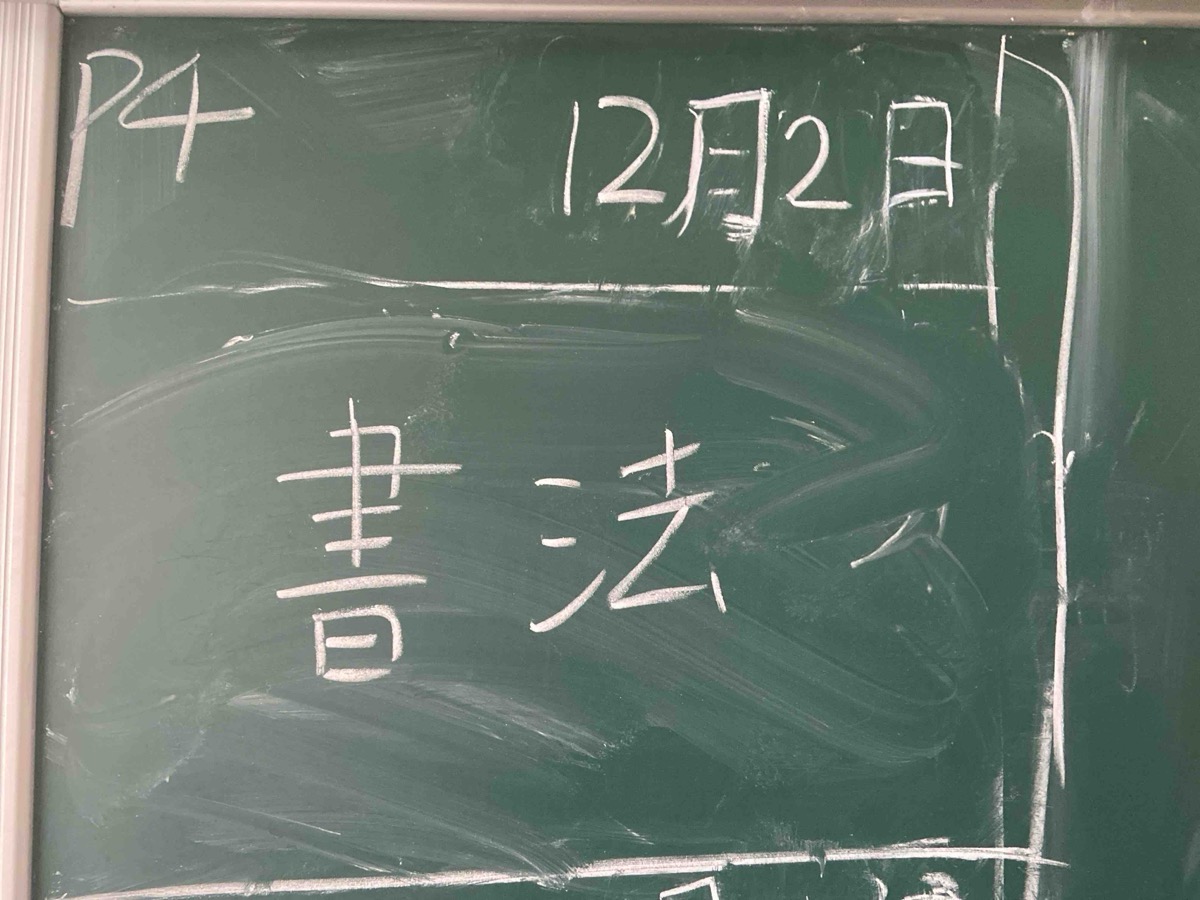 P4 12月2日
書法